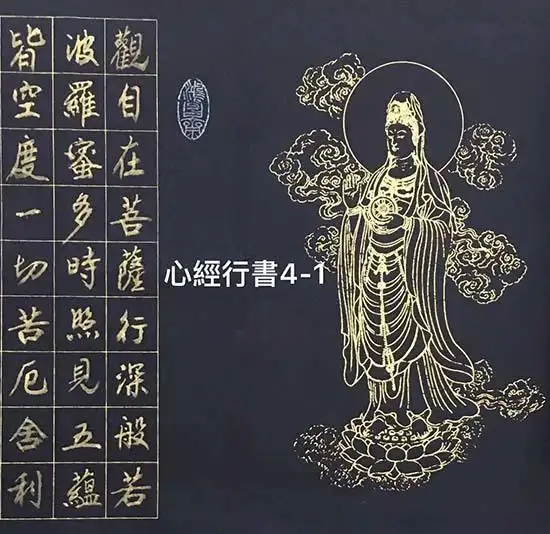 觀自在菩薩行深般若
波羅蜜多時照見五蘊
皆空度一切苦厄舍利
心經行書4-1